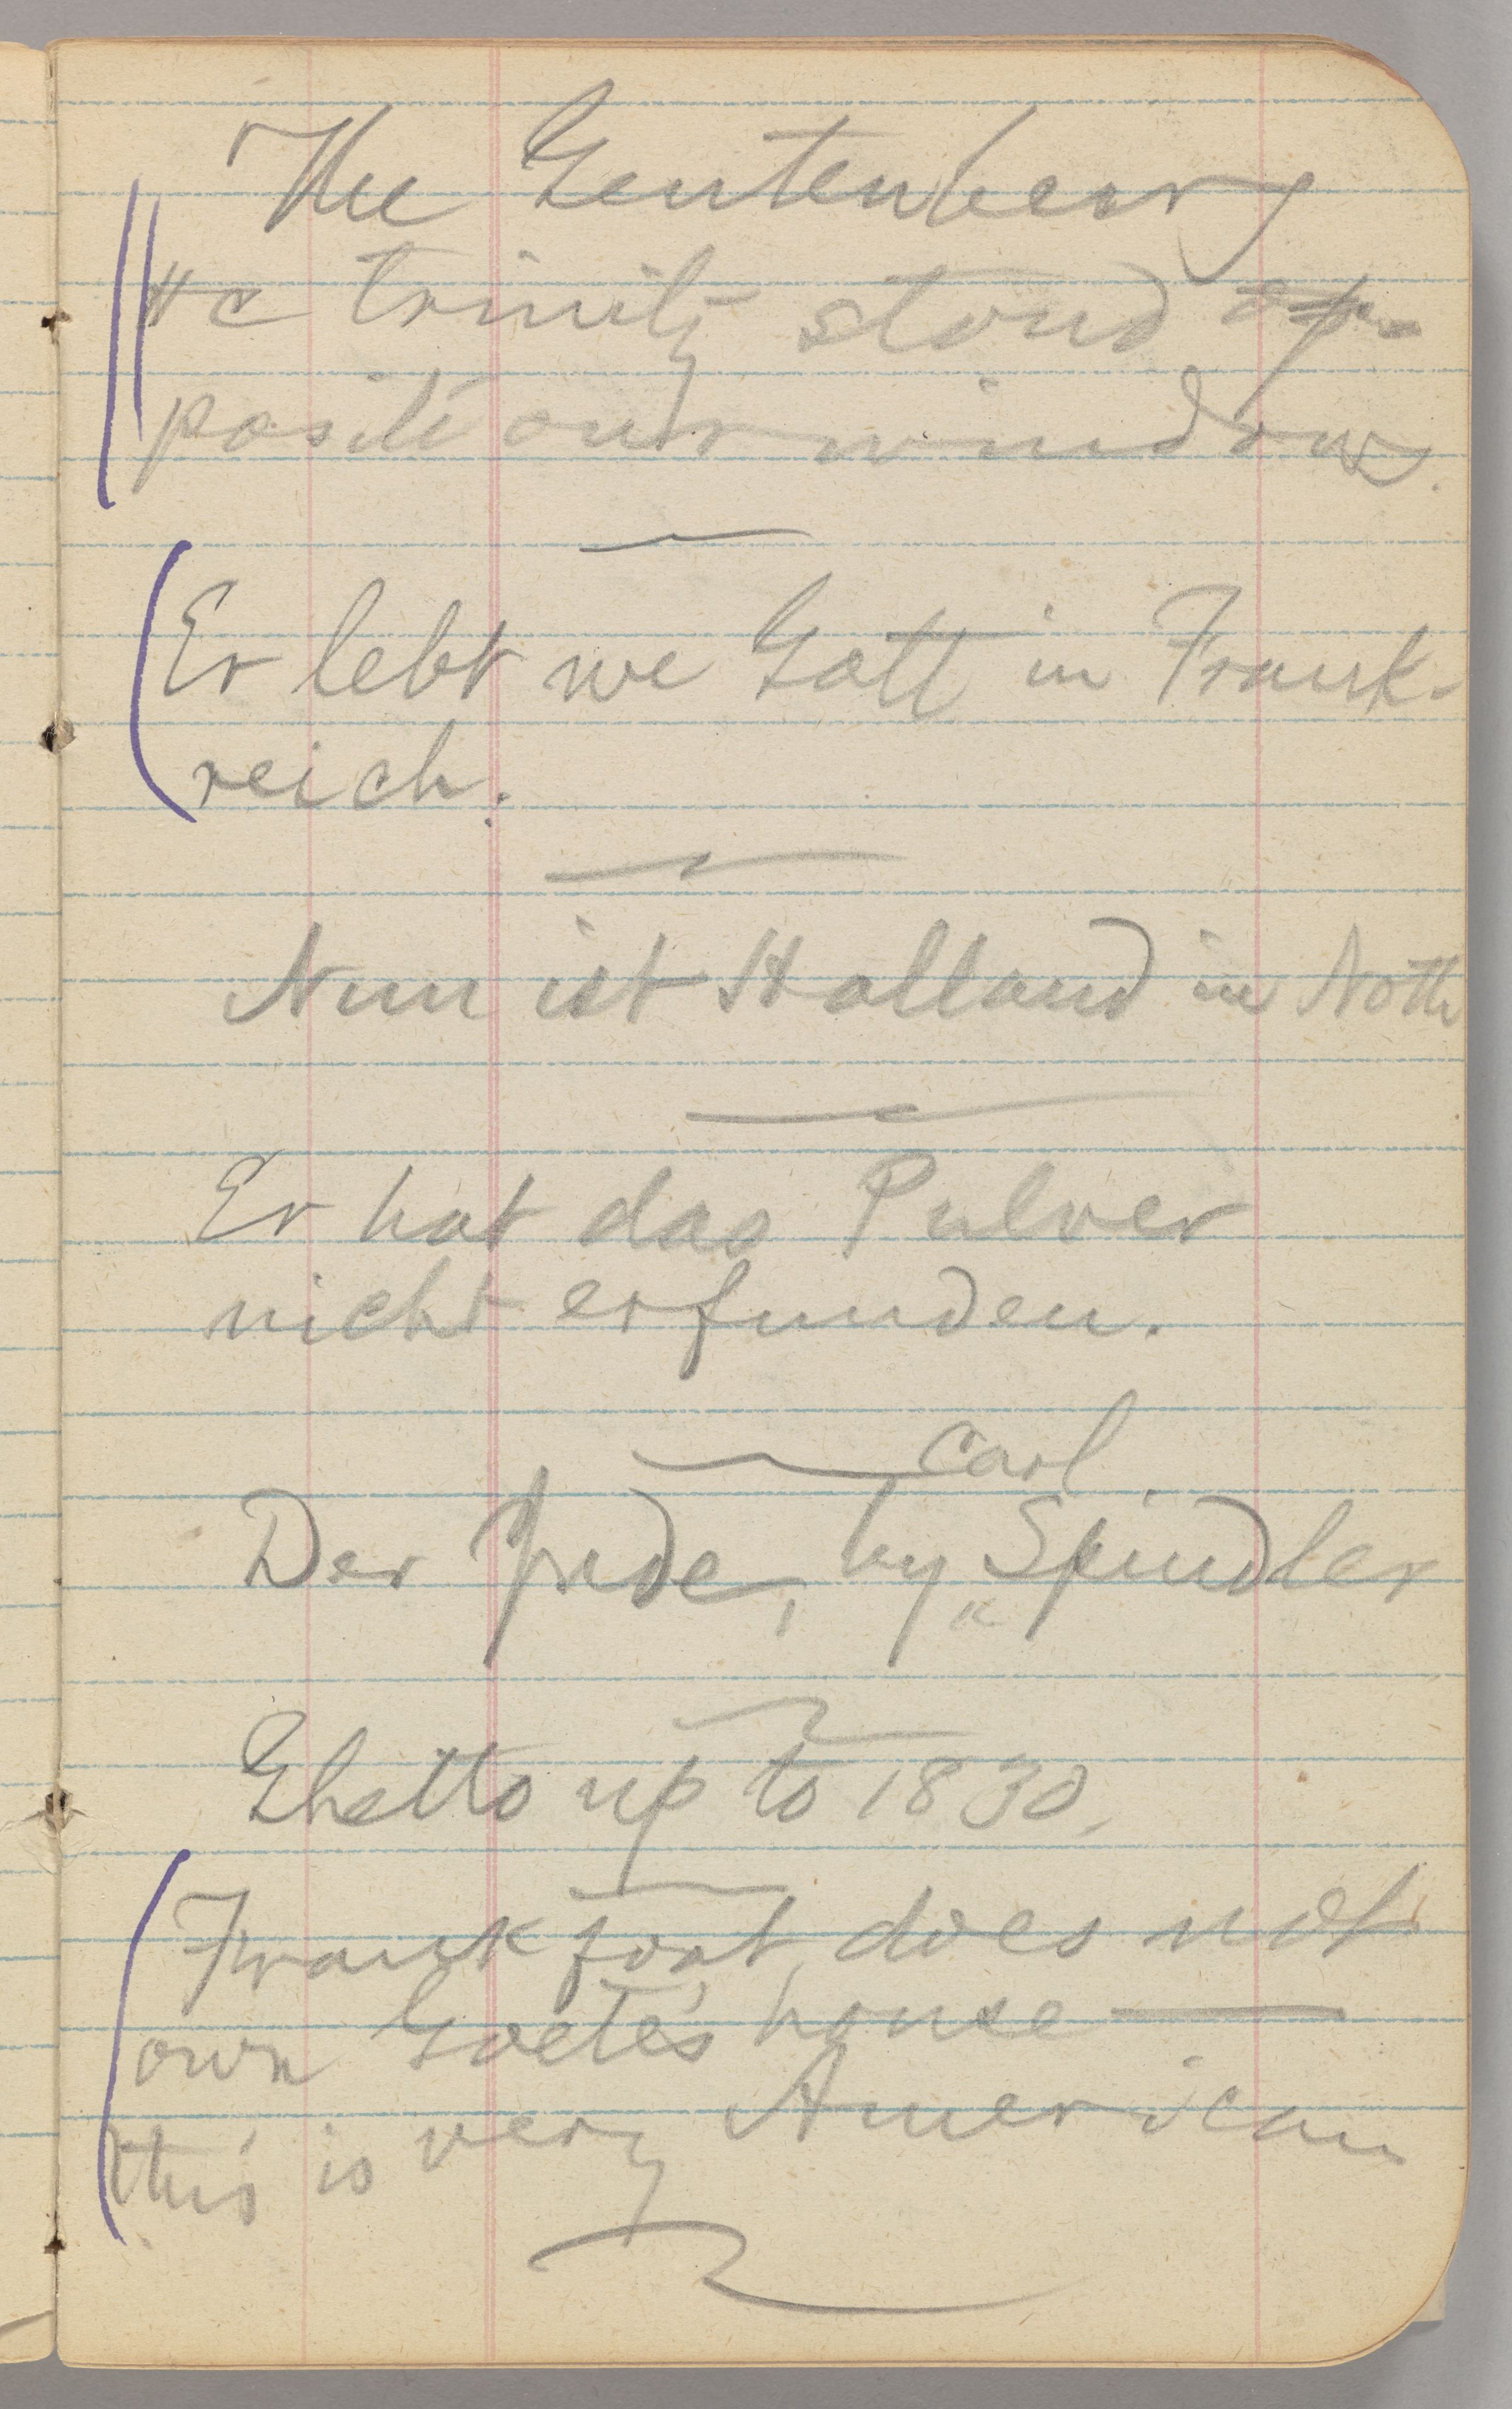 The Gentenberg
&c trinity stand op-
posite our window.
Er lebt wie Gott in Frank-
reich.
Nun ist Holland in Noth
Er hat das Pulver
nicht erfunden.
Carl
Der Jude, by ‸ Spindler
Ghetto up to 1830.
Frankfort does not
own Goete's house —
this is very American